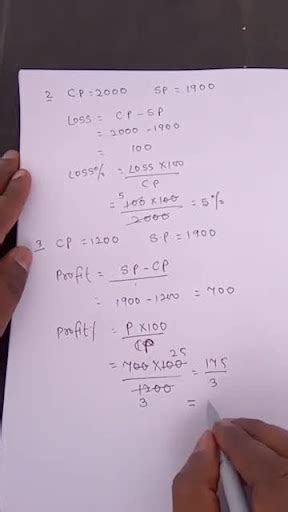 2 CP=2000 SP=1900
Loss = CP-SP
= 2000-1900
= 100
Loss% = Loss×100
CP
5
= 100×100 = 5%
2000
3 CP=1200 SP=1900
Profit = SP-CP
= 1900-1200 = 700
Profit% = P×100
CP
25
= 700×100 = 175
1200 3
3 =